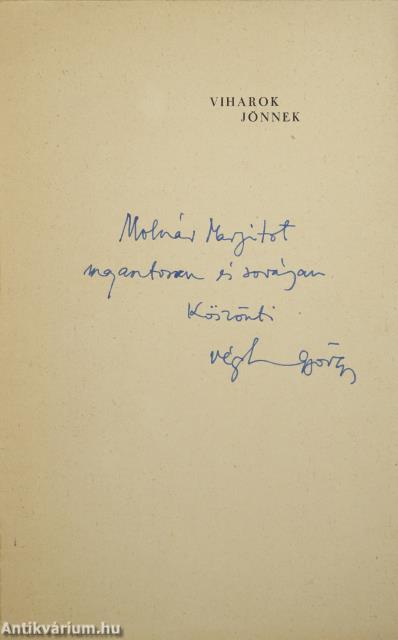 VIHAROK
JÖNNEK
Molnár Margitot
és
Köszönti
Végh György
Antikvárium.hu